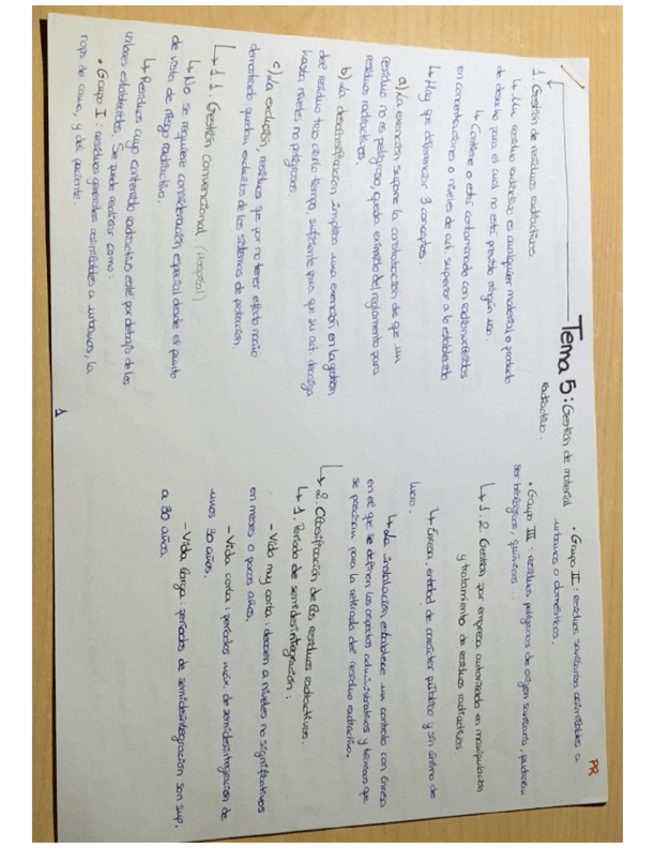 PR
Tema 5: Gestión de material
radiactivo.
1. Gestión de residuos radiactivos
↳ Un residuo radiactivo es cualquier material o producto
de desecho para el cual no está previsto ningún uso.
↳ Contiene o está contaminado con radionucleidos
en concentraciones o niveles de act. superior a lo establecido
↳ Hay que diferenciar 3 conceptos.
a) La exención supone la constatación de que un
residuo no es peligroso, queda eximido del reglamento para
residuos radiactivos.
b) La desclasificación implica una exención en la gestión
del residuo tras cierto tiempo, suficiente para que su act. decaiga
hasta niveles no peligrosos.
c) La exclusión, residuos que por no tener efecto nocivo
demostrado quedan excluidos de los sistemas de protección.
↳ 1.1. Gestión convencional. (Hospital)
↳ No se requiere consideración español desde el punto
de vista de riesgo radiactivo.
↳ Residuos cuyo contenido radiactivo esté por debajo de los
valores establecidos. Se puede realizar como:
• Grupo I: residuos generales asimilables a urbanos, la
ropa de cama, y del paciente.
1
• Grupo II: residuos sanitarios asimilables a
urbanos o domésticos.
• Grupo III: residuos peligrosos de origen sanitario, pudiendo
ser biológicos, químicos...
↳ 1.2. Gestión por empresa autorizada en manipulación
y tratamiento de residuos radiactivos.
↳ Enresa, entidad de carácter público y sin ánimo de
lucro.
↳ La instalación establece un contrato con Enresa
en el que se definen los aspectos administrativos y técnicos que
se precisan para la retirada del residuo radiactivo.
↳ 2. Clasificación de los residuos radiactivos.
↳ 1. Período de semidesintegración:
- Vida muy corta: decaen a niveles no significativos
en meses o pocos años.
- Vida corta: períodos máx de semidesintegración de
unos 30 años.
- Vida larga: períodos de semidesintegración son sup.
a 30 años.